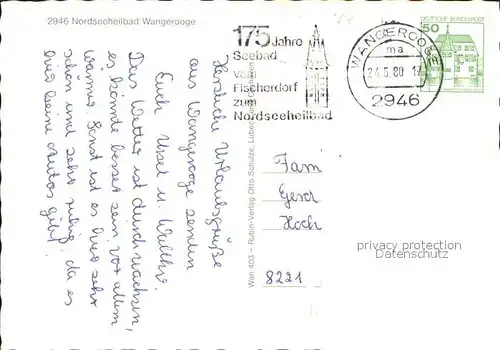 2946 Nordseeheilbad Wangerooge
175 Jahre
Seebad
vom
Fischerdorf
zum
Nordseeheilbad
WANGEROOGE
ma
24.6.80 - 17
2946
DEUTSCHE BUNDESPOST
50
Herzliche Urlaubsgrüße
aus Wangerooge senden
Euch Ursel u. Walther.
Das Wetter ist durchwachsen,
es könnte besser sein, vor allem
wärmer. Sonst ist es hier sehr
schön und sehr ruhig, da es
hier keine Autos gibt!
Wan 403 - Rubin-Verlag Otto Schulze, Lübeck
Fam
Gesch
Hoch
8221
privacy protection
Datenschutz